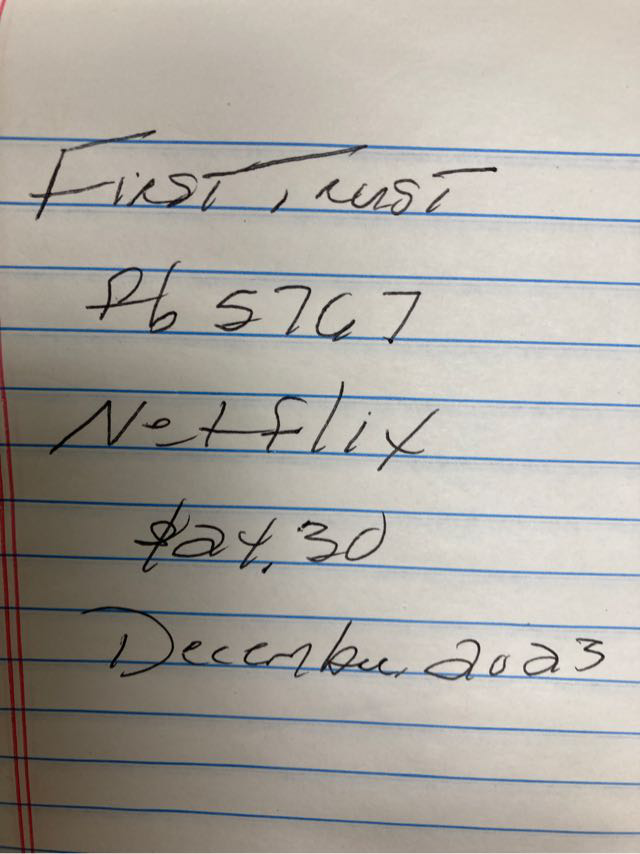 First Trust
Pb 5767
Netflix
$24.30
December 2023